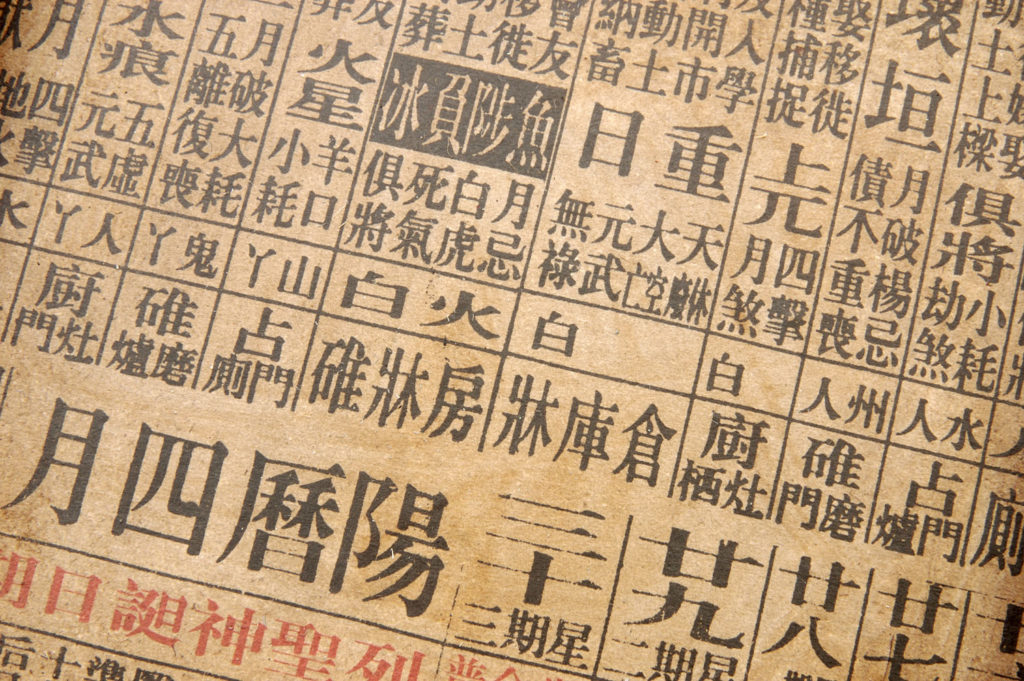 動土上樑
俱將
小耗
劫煞
水人
占門爐
廿七
壞垣
月破楊忌
債不重喪
州人
碓磨門
廿八
娶移徙
種捕捉
上元
四擊
月煞
白
廚灶栖
廿九
星期二
人學
開市
動土
納畜
重日
天
大
元武
無祿
白
倉庫牀
三十
星期三
會友
移徙
動土
葬
魚陟負冰
月忌
白虎
死氣
俱將
火白
房牀碓
火星
羊口
小耗
山丫
占門廁
月破大耗
五離復喪
鬼丫
碓磨爐
水痕
五虛
元武
人丫
廚灶門
月
四擊
地火
水
陽曆四月
列聖神誕日期